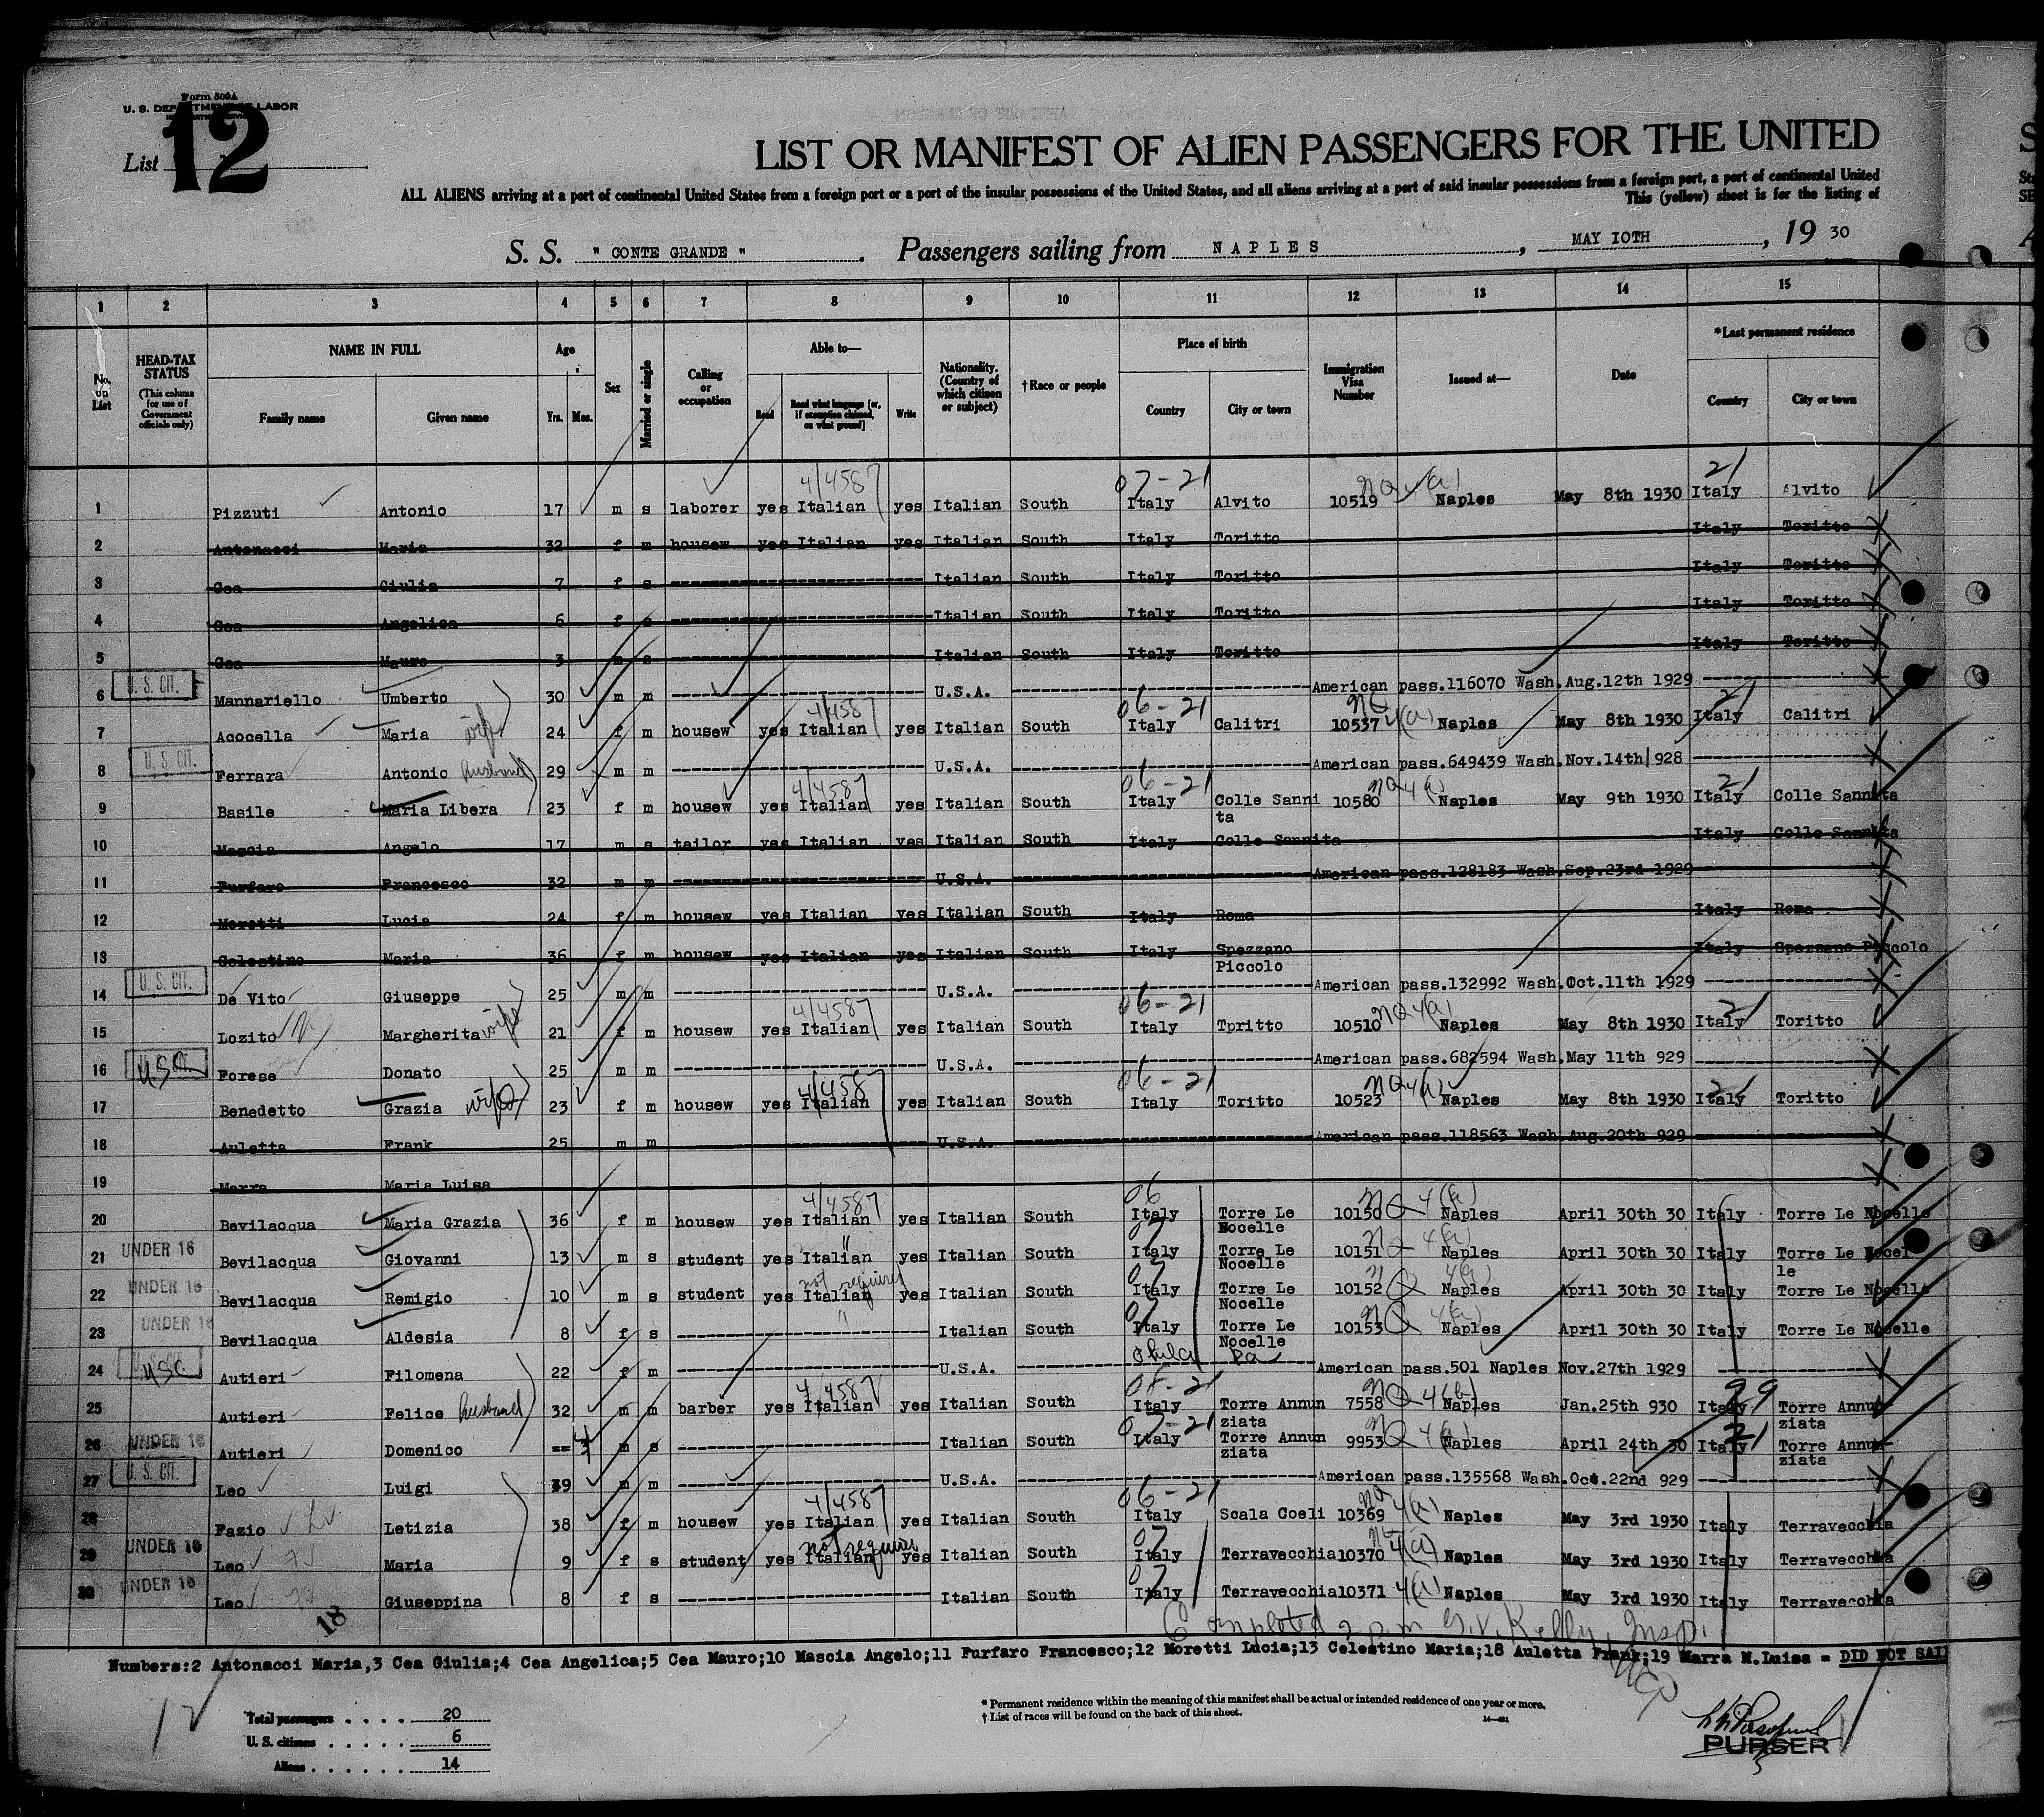 Form 500A
U. S. DEPARTMENT OF LABOR
List 12
LIST OR MANIFEST OF ALIEN PASSENGERS FOR THE UNITED
ALL ALIENS arriving at a port of continental United States from a foreign port or a port of the insular possessions of the United States, and all aliens arriving at a port of said insular possessions from a foreign port, a port of continental United
This (yellow) sheet is for the listing of
S. S. " CONTE GRANDE " . Passengers sailing from NAPLES , MAY IOTH , 19 30
1 2 3 4 5 6 7 8 9 10 11 12 13 14 15
No. on List HEAD-TAX STATUS (This column for use of Government officials only) NAME IN FULL Family name Given name Age Yrs. Mos. Sex Married or single Calling or occupation Able to— Read Read what language [or, if exemption claimed, on what ground] Write Nationality. (Country of which citizen or subject) †Race or people Place of birth Country City or town Immigration Visa Number Issued at— Date *Last permanent residence Country City or town
4/4587 07-21 NQ 4(a) 21
1 Pizzuti Antonio 17 m s laborer yes Italian yes Italian South Italy Alvito 10519 Naples May 8th 1930 Italy Alvito
2 Antonacci Maria 32 f m housew yes Italian yes Italian South Italy Toritto Italy Toritto
3 Cea Giulia 7 f s Italian South Italy Toritto Italy Toritto
4 Cea Angelica 6 f s Italian South Italy Toritto Italy Toritto
5 Cea Mauro 3 m s Italian South Italy Toritto Italy Toritto
6 U. S. CIT. Mannariello Umberto 30 m m U.S.A. American pass.116070 Wash.Aug.12th 1929
4/4587 06-21 NQ 21
7 Acocella Maria wife 24 f m housew yes Italian yes Italian South Italy Calitri 10537 4(a) Naples May 8th 1930 Italy Calitri
8 U. S. CIT. Ferrara Antonio husband 29 m m U.S.A. American pass.649439 Wash.Nov.14th/928
4/4587 06-21 NQ 4(a) 21
9 Basile Maria Libera 23 f m housew yes Italian yes Italian South Italy Colle Sanni 10580 Naples May 9th 1930 Italy Colle Sannita
ta
10 Mascia Angelo 17 m s tailor yes Italian yes Italian South Italy Colle Sannita Italy Colle Sannita
11 Furfaro Francesco 32 m m U.S.A. American pass.128183 Wash.Sep.23rd 1929
12 Moretti Lucia 24 f m housew yes Italian yes Italian South Italy Roma Italy Roma
13 Celestino Maria 36 f m housew yes Italian yes Italian South Italy Spezzano Italy Spezzano Piccolo
Piccolo
14 U. S. CIT. De Vito Giuseppe 25 m m U.S.A. American pass.132992 Wash.Oct.11th 1929
4/4587 06-21 NQ 4(a) 21
15 Lozito Margherita wife 21 f m housew yes Italian yes Italian South Italy Tpritto 10510 Naples May 8th 1930 Italy Toritto
16 USC Forese Donato 25 m m U.S.A. American pass.682594 Wash.May 11th 929
4/4587 06-21 NQ 4(a) 21
17 Benedetto Grazia wife 23 f m housew yes Italian yes Italian South Italy Toritto 10523 Naples May 8th 1930 Italy Toritto
18 Auletta Frank 25 m m U.S.A. American pass.118563 Wash.Aug.20th 929
19 Marra Maria Luisa
4/4587 06 NQ 4(a)
20 Bevilacqua Maria Grazia 36 f m housew yes Italian yes Italian South Italy Torre Le 10150 Naples April 30th 30 Italy Torre Le Nocelle
Nocelle
" 07 NQ 4(a)
21 UNDER 16 Bevilacqua Giovanni 13 m s student yes Italian yes Italian South Italy Torre Le 10151 Naples April 30th 30 Italy Torre Le Nocel
Nocelle le
not required 07 NQ 4(a)
22 UNDER 16 Bevilacqua Remigio 10 m s student yes Italian yes Italian South Italy Torre Le 10152 Naples April 30th 30 Italy Torre Le Nocelle
Nocelle
" 07 NQ 4(a)
23 UNDER 16 Bevilacqua Aldesia 8 f s Italian South Italy Torre Le 10153 Naples April 30th 30 Italy Torre Le Nocelle
Nocelle
Phila Pa
24 U. S. CIT. USC Autieri Filomena 22 f m U.S.A. American pass.501 Naples Nov.27th 1929
4/4587 NQ 4(b) 99
25 Autieri Felice husband 32 m m barber yes Italian yes Italian South Italy Torre Annun 7558 Naples Jan.25th 930 Italy Torre Annun
ziata ziata
07-21 NQ 4(a) 21
26 UNDER 16 Autieri Domenico m s Italian South Italy Torre Annun 9953 Naples April 24th 30 Italy Torre Annun
ziata ziata
27 U. S. CIT. Leo Luigi 39 m m U.S.A. American pass.135568 Wash.Oct.22nd 929
4/4587 06-21 NQ 4(a)
28 Fazio Letizia 38 f m housew yes Italian yes Italian South Italy Scala Coeli 10369 Naples May 3rd 1930 Italy Terravecchia
not required 07 NQ 4(a)
29 UNDER 16 Leo Maria 9 f s student yes Italian yes Italian South Italy Terravecchia 10370 Naples May 3rd 1930 Italy Terravecchia
07
30 UNDER 16 Leo Giuseppina 8 f s Italian South Italy Terravecchia 10371 4(a) Naples May 3rd 1930 Italy Terravecchia
18 Completed 2 p.m. Kelly, Insp.
Numbers:2 Antonacci Maria,3 Cea Giulia;4 Cea Angelica;5 Cea Mauro;10 Mascia Angelo;11 Furfaro Francesco;12 Moretti Lucia;13 Celestino Maria;18 Auletta Frank;19 Marra M.Luisa = DID NOT SAIL
12
Total passengers . . . . 20
U. S. citizens . . . . . 6
Aliens . . . . . . 14
* Permanent residence within the meaning of this manifest shall be actual or intended residence of one year or more.
† List of races will be found on the back of this sheet.
PURSER